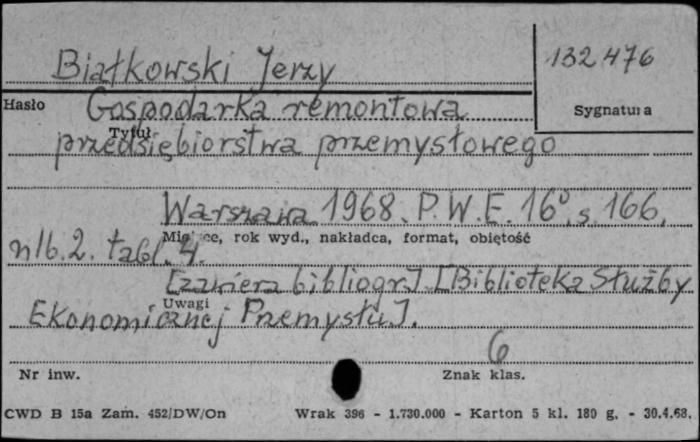 Białkowski Jerzy
132476
Hasło
Sygnatura
Gospodarka remontowa
Tytuł
przedsiębiorstwa przemysłowego
Warszawa 1968. P.W.E. 16°. s. 166,
Miejsce, rok wyd., nakładca, format, objętość
nlb. 2. tabl. 4.
[zawiera bibliogr.] [Biblioteka Służby
Uwagi
Ekonomicznej Przemysłu].
6
Nr inw.
Znak klas.
CWD B 15a Zam. 452/DW/On Wrak 396 - 1.730.000 - Karton 5 kl. 180 g. - 30.4.68.